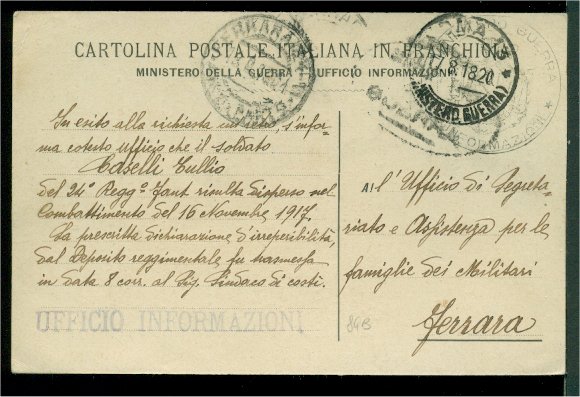 CARTOLINA POSTALE ITALIANA IN FRANCHIGIA
MINISTERO DELLA GUERRA - UFFICIO INFORMAZIONI
FERRARA
ROMA
8.18 20
(MINISTERO GUERRA)
GUERRA
INFORMAZIONI
In esito alla richiesta s'infor=
ma cotesto ufficio che il soldato
Caselli Tullio
del 24° Regg° Fant risulta disperso nel
Combattimento del 16 Novembre 1917.
La prescritta dichiarazione d'irreperibilità,
dal Deposito reggimentale fu trasmessa
in data 8 corr. al Sig. Sindaco di costì.
UFFICIO INFORMAZIONI
All'Ufficio di Segreta-
riato e Assistenza per le
famiglie dei Militari
Ferrara